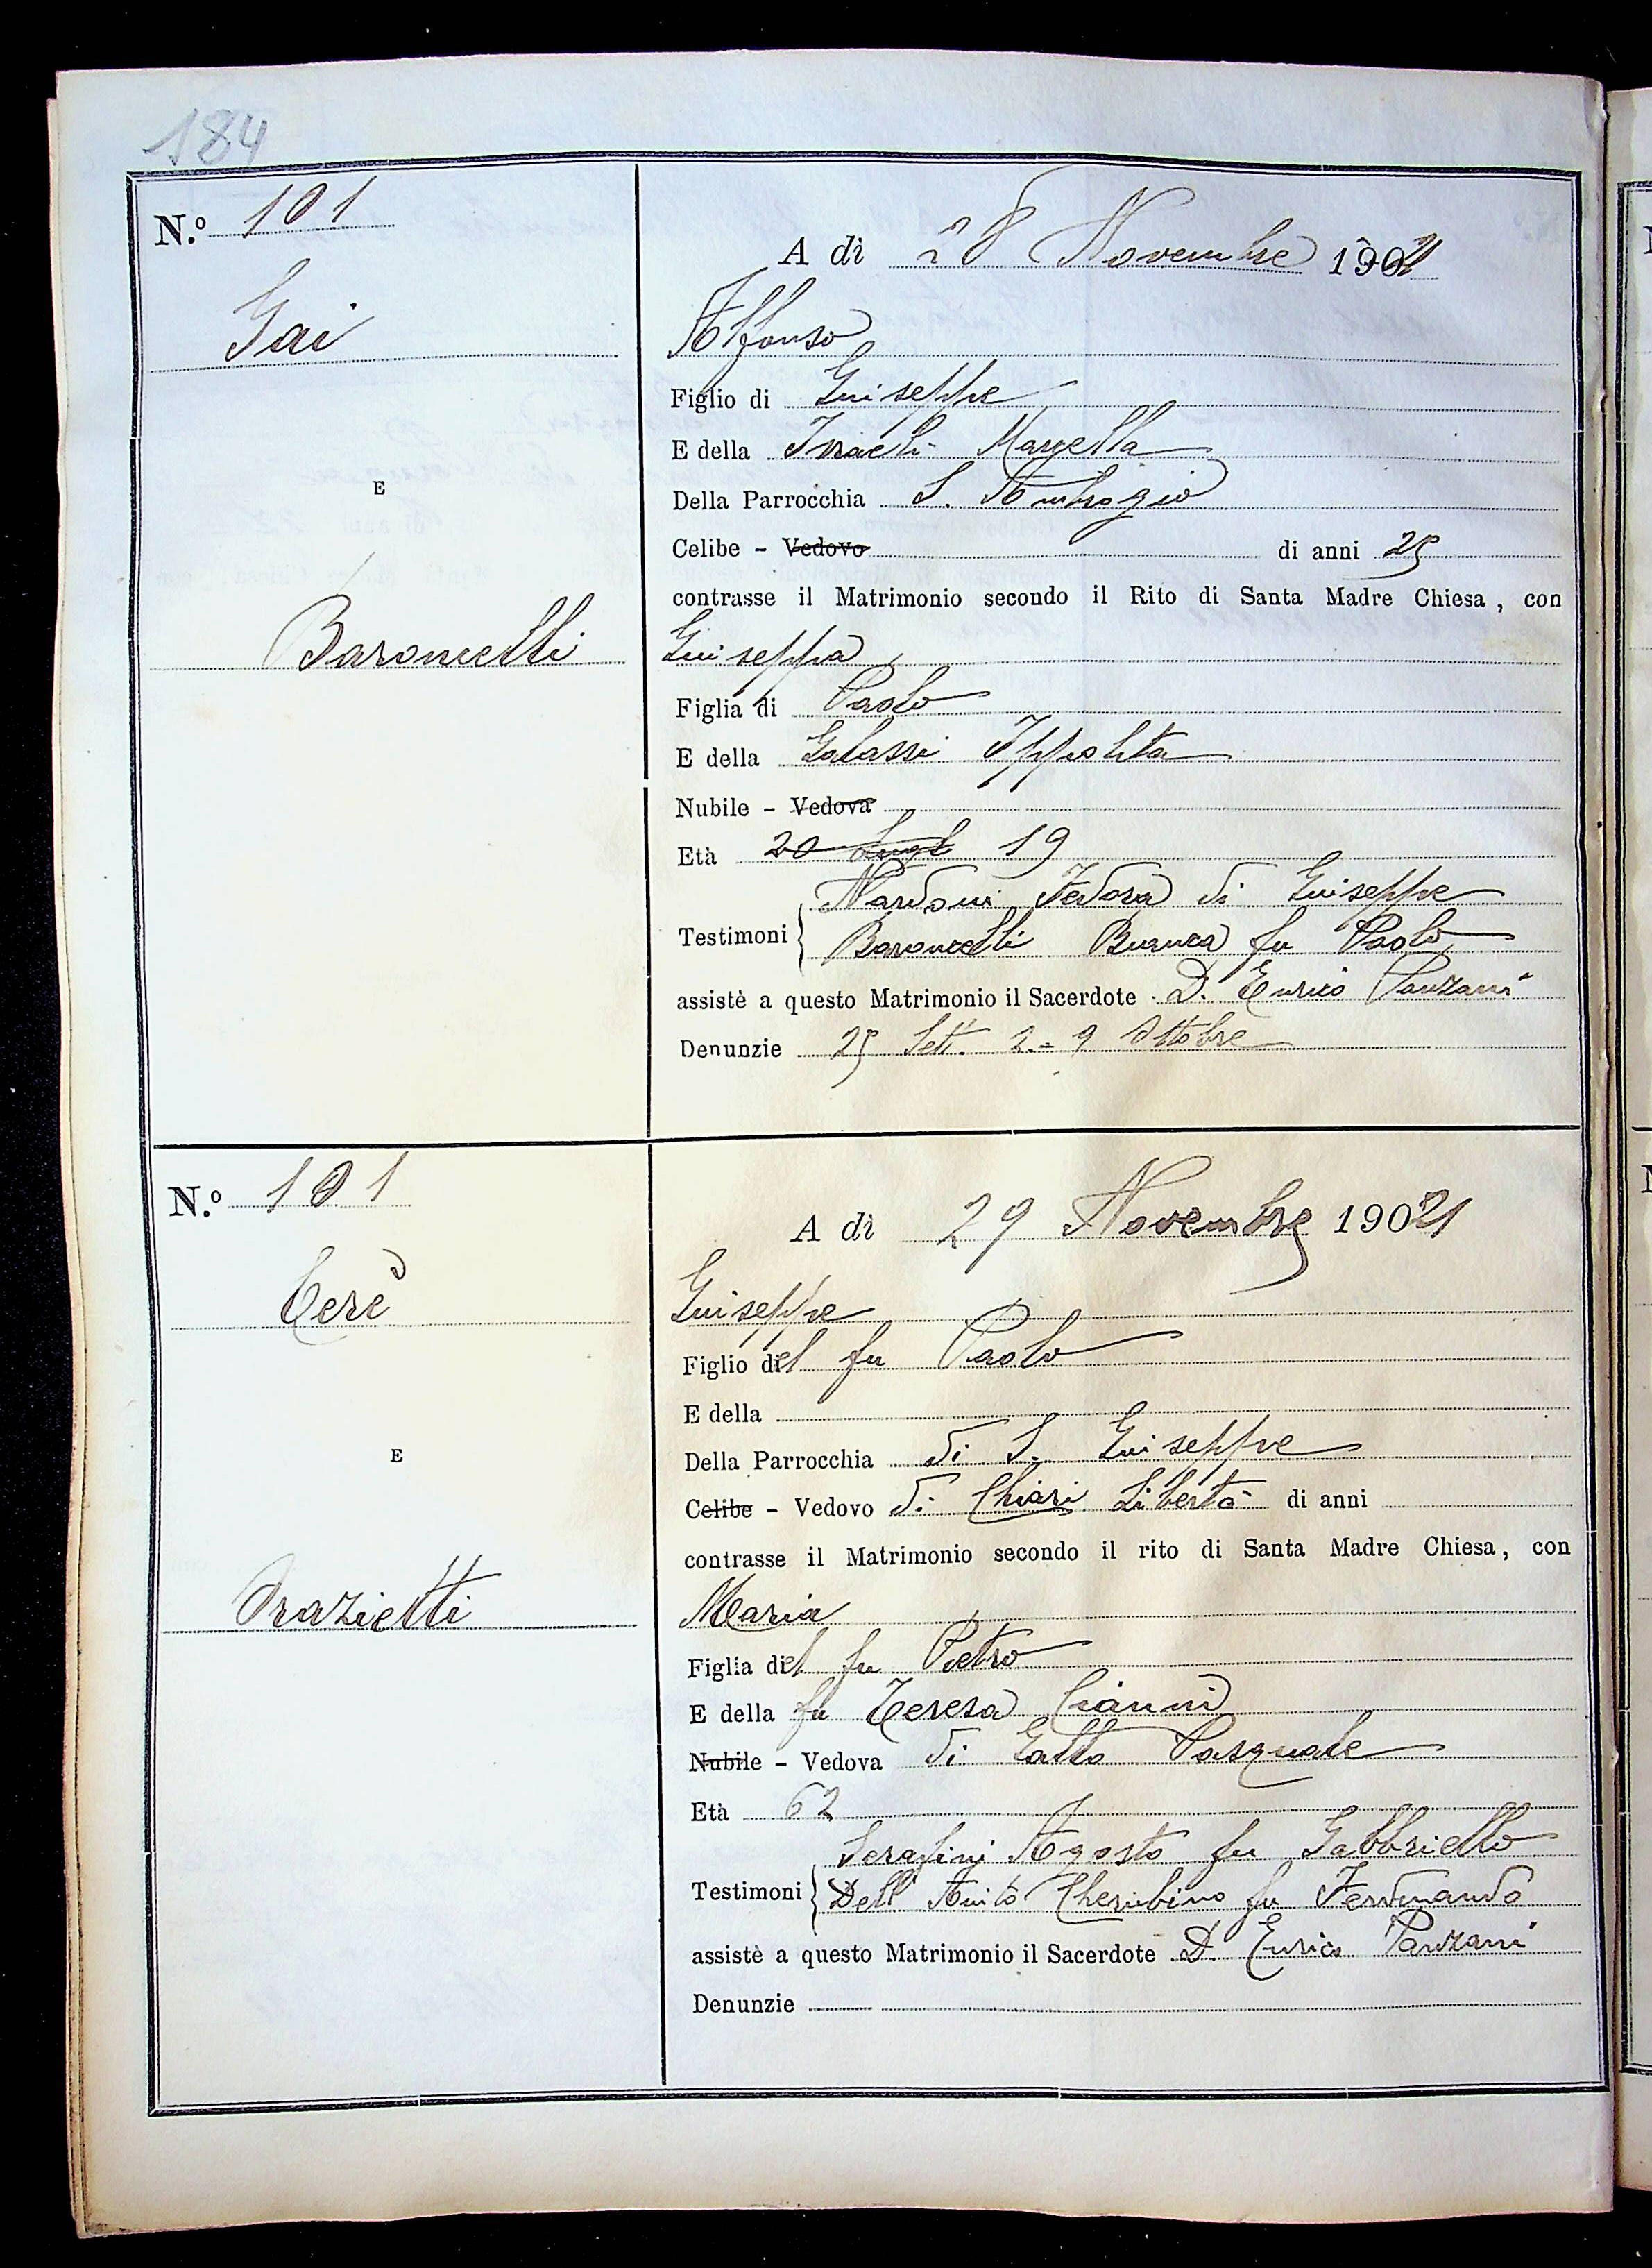 184
N.º 101
A dì 28 Novembre 1921
Gai
Alfonso
Figlio di Giuseppe
E della Israeli Marcella
E
Della Parrocchia S. Ambrogio
Celibe - Vedovo di anni 25
contrasse il Matrimonio secondo il Rito di Santa Madre Chiesa, con
Baroncelli
Giuseppa
Figlia di Paolo
E della Galassi Ippolita
Nubile - Vedova
Età 20 19
Nardoni Fedora di Giuseppe
Testimoni { Baroncelli Bianca fu Paolo
assistè a questo Matrimonio il Sacerdote D. Enrico Panzani
Denunzie 25 Sett. 2 - 9 Ottobre
N.º 101
A dì 29 Novembre 1921
Cerè
Giuseppe
Figlio del fu Paolo
E della
Della Parrocchia di S. Giuseppe
E
Celibe - Vedovo di Chiari Libertà di anni
contrasse il Matrimonio secondo il rito di Santa Madre Chiesa, con
Orazietti
Maria
Figlia del fu Pietro
E della fu Teresa Cianni
Nubile - Vedova di Gatto Pasquale
Età 62
Serafini Agosto fu Gabbriello
Testimoni { Dell' Cherubino fu Ferdinando
assistè a questo Matrimonio il Sacerdote D. Enrico Panzani
Denunzie